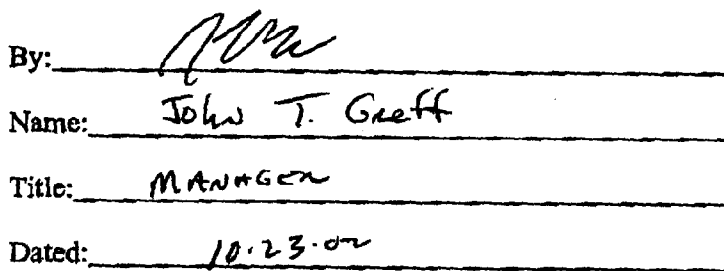 By:
Name: John T. Greff
Title: MANAGER
Dated: 10.23.02